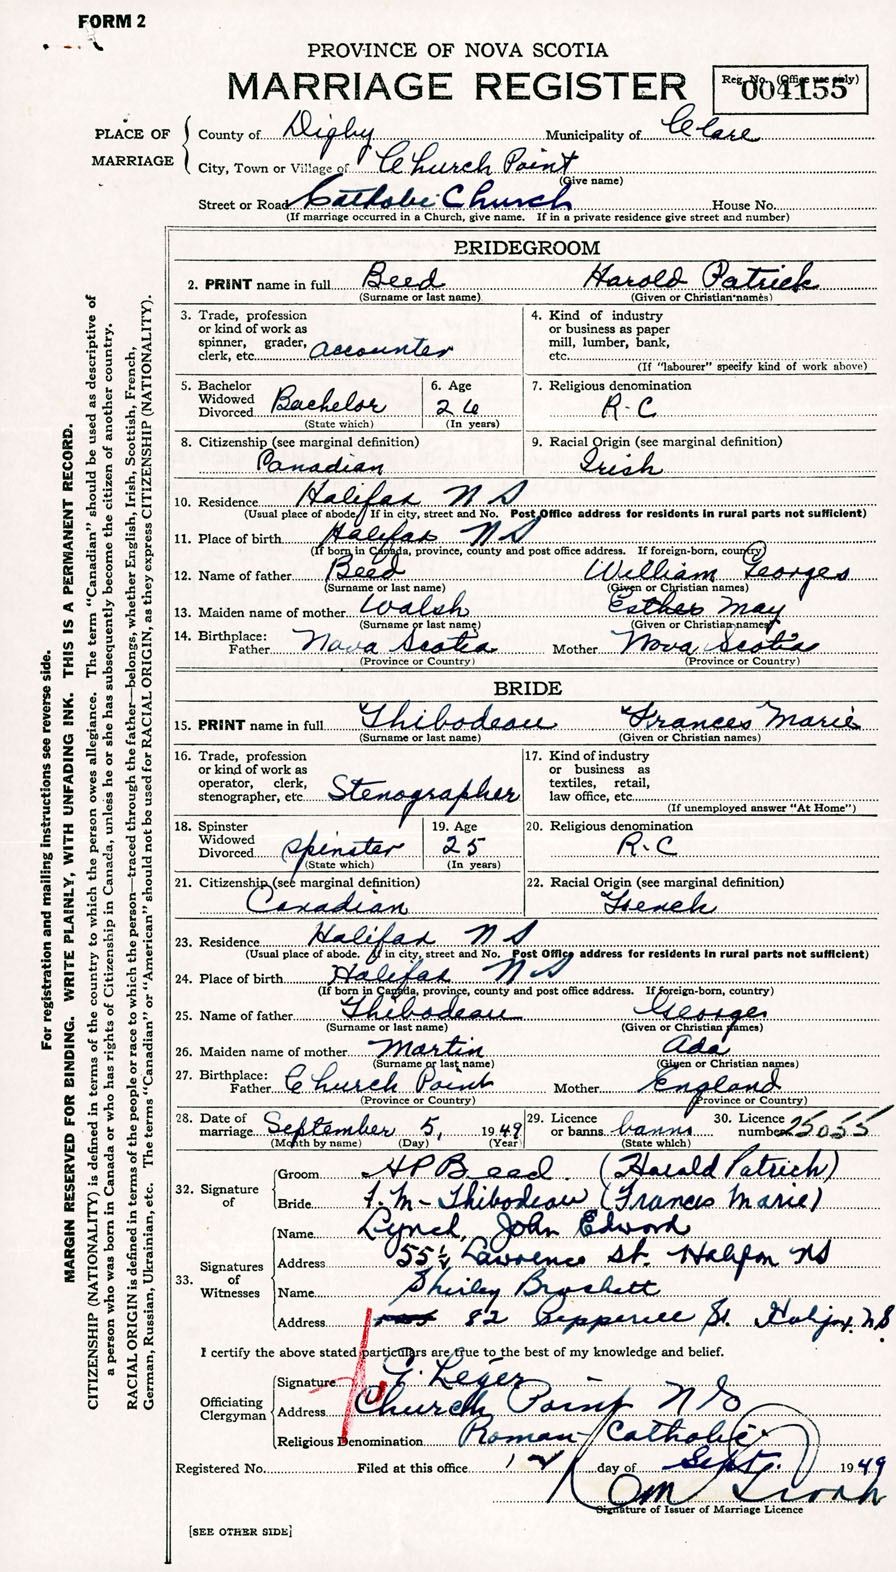 FORM 2
PROVINCE OF NOVA SCOTIA
MARRIAGE REGISTER
Reg. No. (Office use only)
004155
PLACE OF MARRIAGE
County of Digby Municipality of Clare
City, Town or Village of Church Point
(Give name)
Street or Road Catholic Church House No.
(If marriage occurred in a Church, give name. If in a private residence give street and number)
BRIDEGROOM
2. PRINT name in full Beed Harold Patrick
(Surname or last name) (Given or Christian names)
3. Trade, profession or kind of work as spinner, grader, clerk, etc. accounter
4. Kind of industry or business as paper mill, lumber, bank, etc.
(If "labourer" specify kind of work above)
5. Bachelor Widowed Divorced Bachelor
(State which)
6. Age 26
(In years)
7. Religious denomination R-C
8. Citizenship (see marginal definition) Canadian
9. Racial Origin (see marginal definition) Irish
10. Residence Halifax N S
(Usual place of abode. If in city, street and No. Post Office address for residents in rural parts not sufficient)
11. Place of birth Halifax N S
(If born in Canada, province, county and post office address. If foreign-born, country)
12. Name of father Beed William Georges
(Surname or last name) (Given or Christian names)
13. Maiden name of mother Walsh Esther May
(Surname or last name) (Given or Christian names)
14. Birthplace: Father Nova Scotia Mother Nova Scotia
(Province or Country) (Province or Country)
BRIDE
15. PRINT name in full Thibodeau Frances Marie
(Surname or last name) (Given or Christian names)
16. Trade, profession or kind of work as operator, clerk, stenographer, etc. Stenographer
17. Kind of industry or business as textiles, retail, law office, etc.
(If unemployed answer "At Home")
18. Spinster Widowed Divorced spinster
(State which)
19. Age 25
(In years)
20. Religious denomination R-C
21. Citizenship (see marginal definition) Canadian
22. Racial Origin (see marginal definition) French
23. Residence Halifax N S
(Usual place of abode. If in city, street and No. Post Office address for residents in rural parts not sufficient)
24. Place of birth Halifax N S
(If born in Canada, province, county and post office address. If foreign-born, country)
25. Name of father Thibodeau Georges
(Surname or last name) (Given or Christian names)
26. Maiden name of mother Martin Ada
(Surname or last name) (Given or Christian names)
27. Birthplace: Father Church Point Mother England
(Province or Country) (Province or Country)
28. Date of marriage September 5, 1949
(Month by name) (Day) (Year)
29. Licence or banns banns
(State which)
30. Licence number 25055
32. Signature of
Groom H P Beed (Harold Patrick)
Bride F. M- Thibodeau (Frances Marie)
33. Signatures of Witnesses
Name Lynch, John Edward
Address 55½ Lawrence St. Halifax NS
Name Shirley Brackett
Address 82 Pepperell St. Halifax. N.S.
I certify the above stated particulars are true to the best of my knowledge and belief.
Officiating Clergyman
Signature Leger
Address Church Point N S
Religious Denomination Roman Catholic
Registered No. Filed at this office 12 day of Sept. 1949
Signature of Issuer of Marriage Licence
[SEE OTHER SIDE]
For registration and mailing instructions see reverse side.
MARGIN RESERVED FOR BINDING. WRITE PLAINLY, WITH UNFADING INK. THIS IS A PERMANENT RECORD.
CITIZENSHIP (NATIONALITY) is defined in terms of the country to which the person owes allegiance. The term "Canadian" should be used as descriptive of
a person who was born in Canada or who has rights of Citizenship in Canada, unless he or she has subsequently become the citizen of another country.
RACIAL ORIGIN is defined in terms of the people or race to which the person—traced through the father—belongs, whether English, Irish, Scottish, French,
German, Russian, Ukrainian, etc. The terms "Canadian" or "American" should not be used for RACIAL ORIGIN, as they express CITIZENSHIP (NATIONALITY).